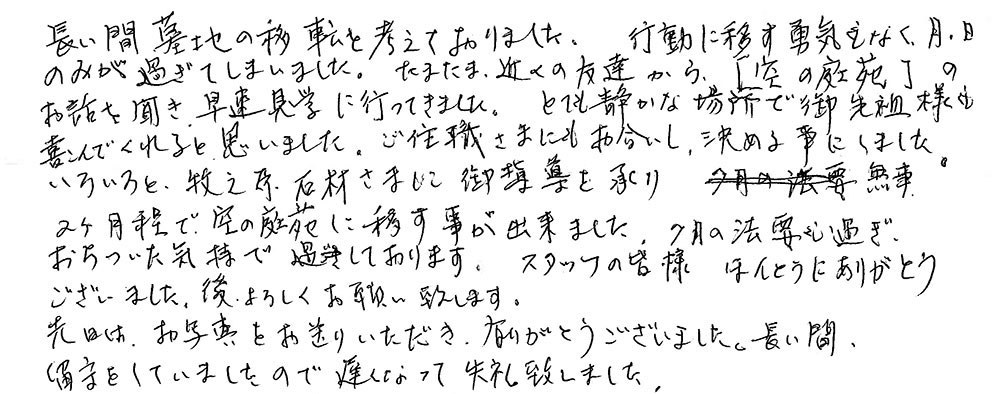 長い間墓地の移転を考えておりました。 行動に移す勇気もなく、月、日
のみが過ぎてしまいました。たまたま、近くの友達から、[空の庭苑]の
お話を聞き、早速見学に行ってきました。とても静かな場所で御先祖様も
喜んでくれると思いました。ご住職さまにもお会いし、決める事にしました。
いろいろと、牧之原石材さまに御指導を承り 7月の法要 無事
2ヶ月程で、空の庭苑に移す事が出来ました。7月の法要も過ぎ、
おちついた気持で過しております。スタッフの皆様 ほんとうにありがとう
ございました。後、よろしくお願い致します。
先日は、お写真をお送りいただき、有りがとうございました。長い間、
留守をしていましたので遅くなって失礼致しました。